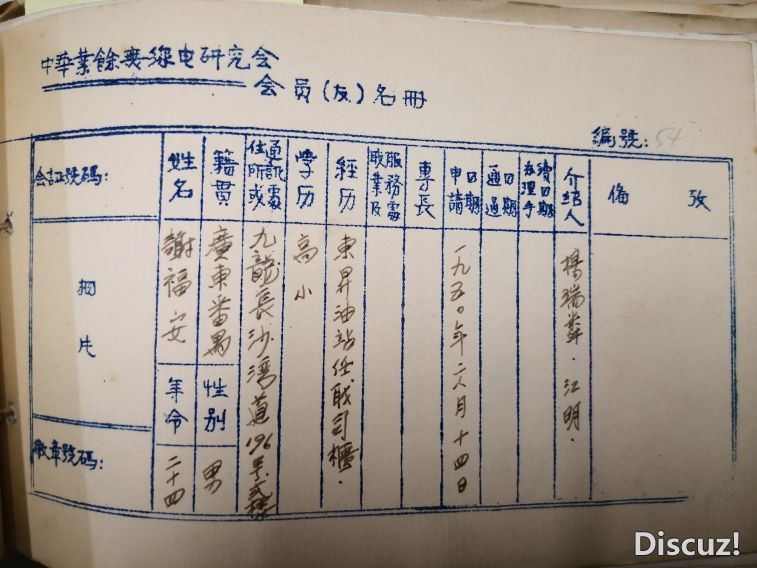 中華業餘無線电研究会
会員(友)名冊
編號: 54
会証號碼:
相片
徽章號碼:
姓名
謝福安
年令
二十四
籍貫
廣東番禺
性別
男
住所或通訊處
九龍長沙湾道196号弍楼
学历
高小
经历
東昇油站任职司櫃.
服務處及职業
専長
申請日期
一九五〇年二八月十四日
通過日期
办理手續日期
介紹人
楊瑞棻.江明.
俻攷
Discuz!